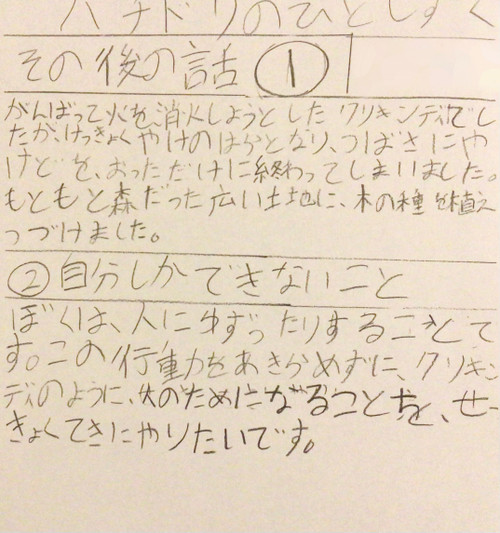 ハチドリのひとしずく
その後の話 ①
がんばって火を消火しようとしたクリキンディでし
たが、けっきょくやけのはらとなり、つばさにや
けどを、おっただけに終わってしまいました。
もともと森だった広い土地に、木の種を植え
つづけました。
②自分しかできないこと
ぼくは、人にゆずったりすることで
す。この行動力をあきらめずに、クリキン
ディのように、のためになることを、せっ
きょくてきにやりたいです。